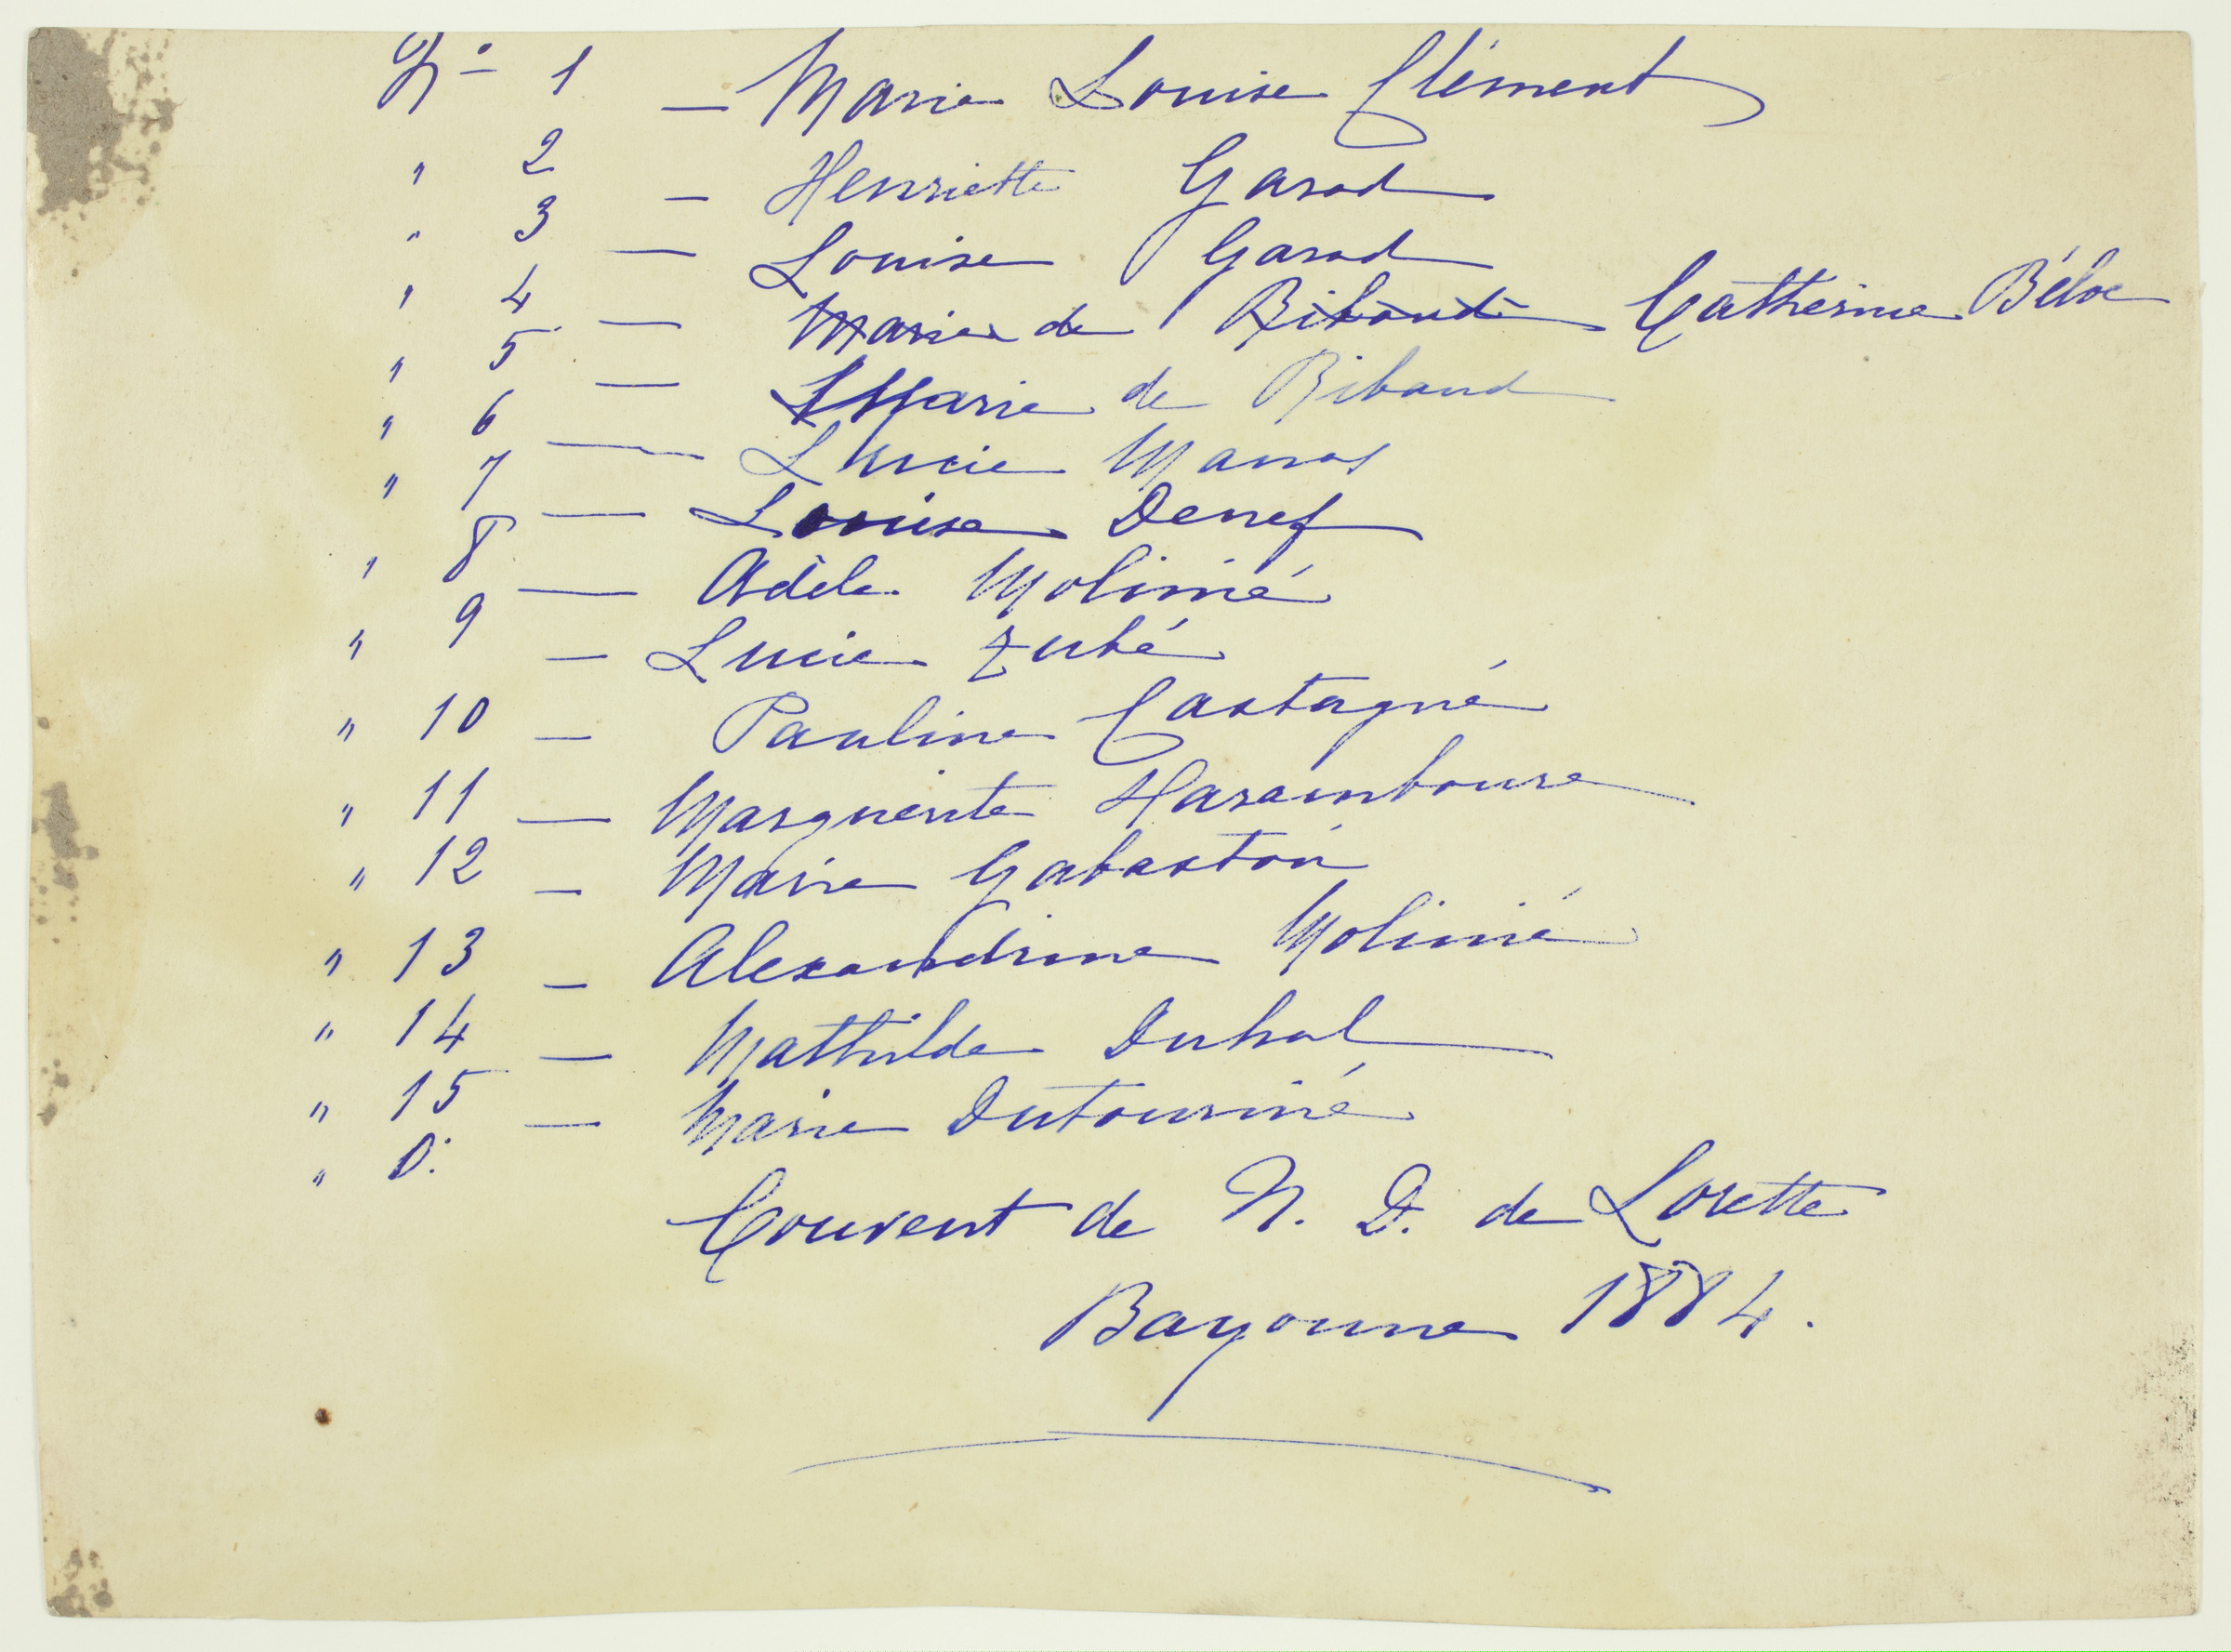 N° 1 — Marie Louise Clément
" 2 — Henriette Garod
" 3 — Louise Garod
" 4 — Marie de Ribaud Catherine Béloc
" 5 — Marie de Ribaud
" 6 — Lucie Manos
" 7 — Louise Denef
" 8 — Adèle Molinié
" 9 — Lucie Zubé
" 10 — Pauline Castagné
" 11 — Marguerite Haramboure
" 12 — Marie Gabaston
" 13 — Alexandrine Molinié
" 14 — Mathilde Duhal
" 15 — Marie Dutourné
" D:
Couvent de N. D. de Lorette
Bayonne 1884.